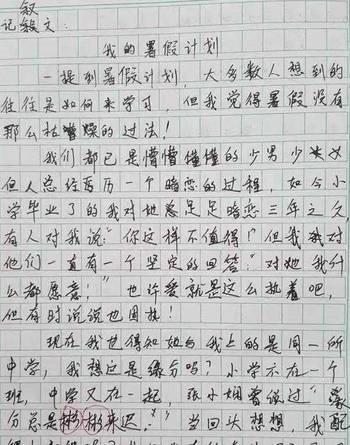 叙
记叙文:
我的暑假计划
一提到暑假计划,大多数人想到的
往往是如何来学习,但我觉得暑假没有
那么枯燥的过法!
我们都已是懵懵懂懂的少男少女
但人总经历一个暗恋的过程,如今小
学毕业了的我对她总足足暗恋三年之久,
有人对我说:"你这样不值得!"但我对
他们一直有一个坚定的回答:"对她我什
么都愿意!"也许爱就是这么执着吧,
但有时说说也困扰!
现在我也得知她与我上的是同一所
中学,我想这是缘分吗?小学不在一个
班,中学又在一起,张小娴曾说过"缘
分总是姗姗来迟。"当回头想想,我配